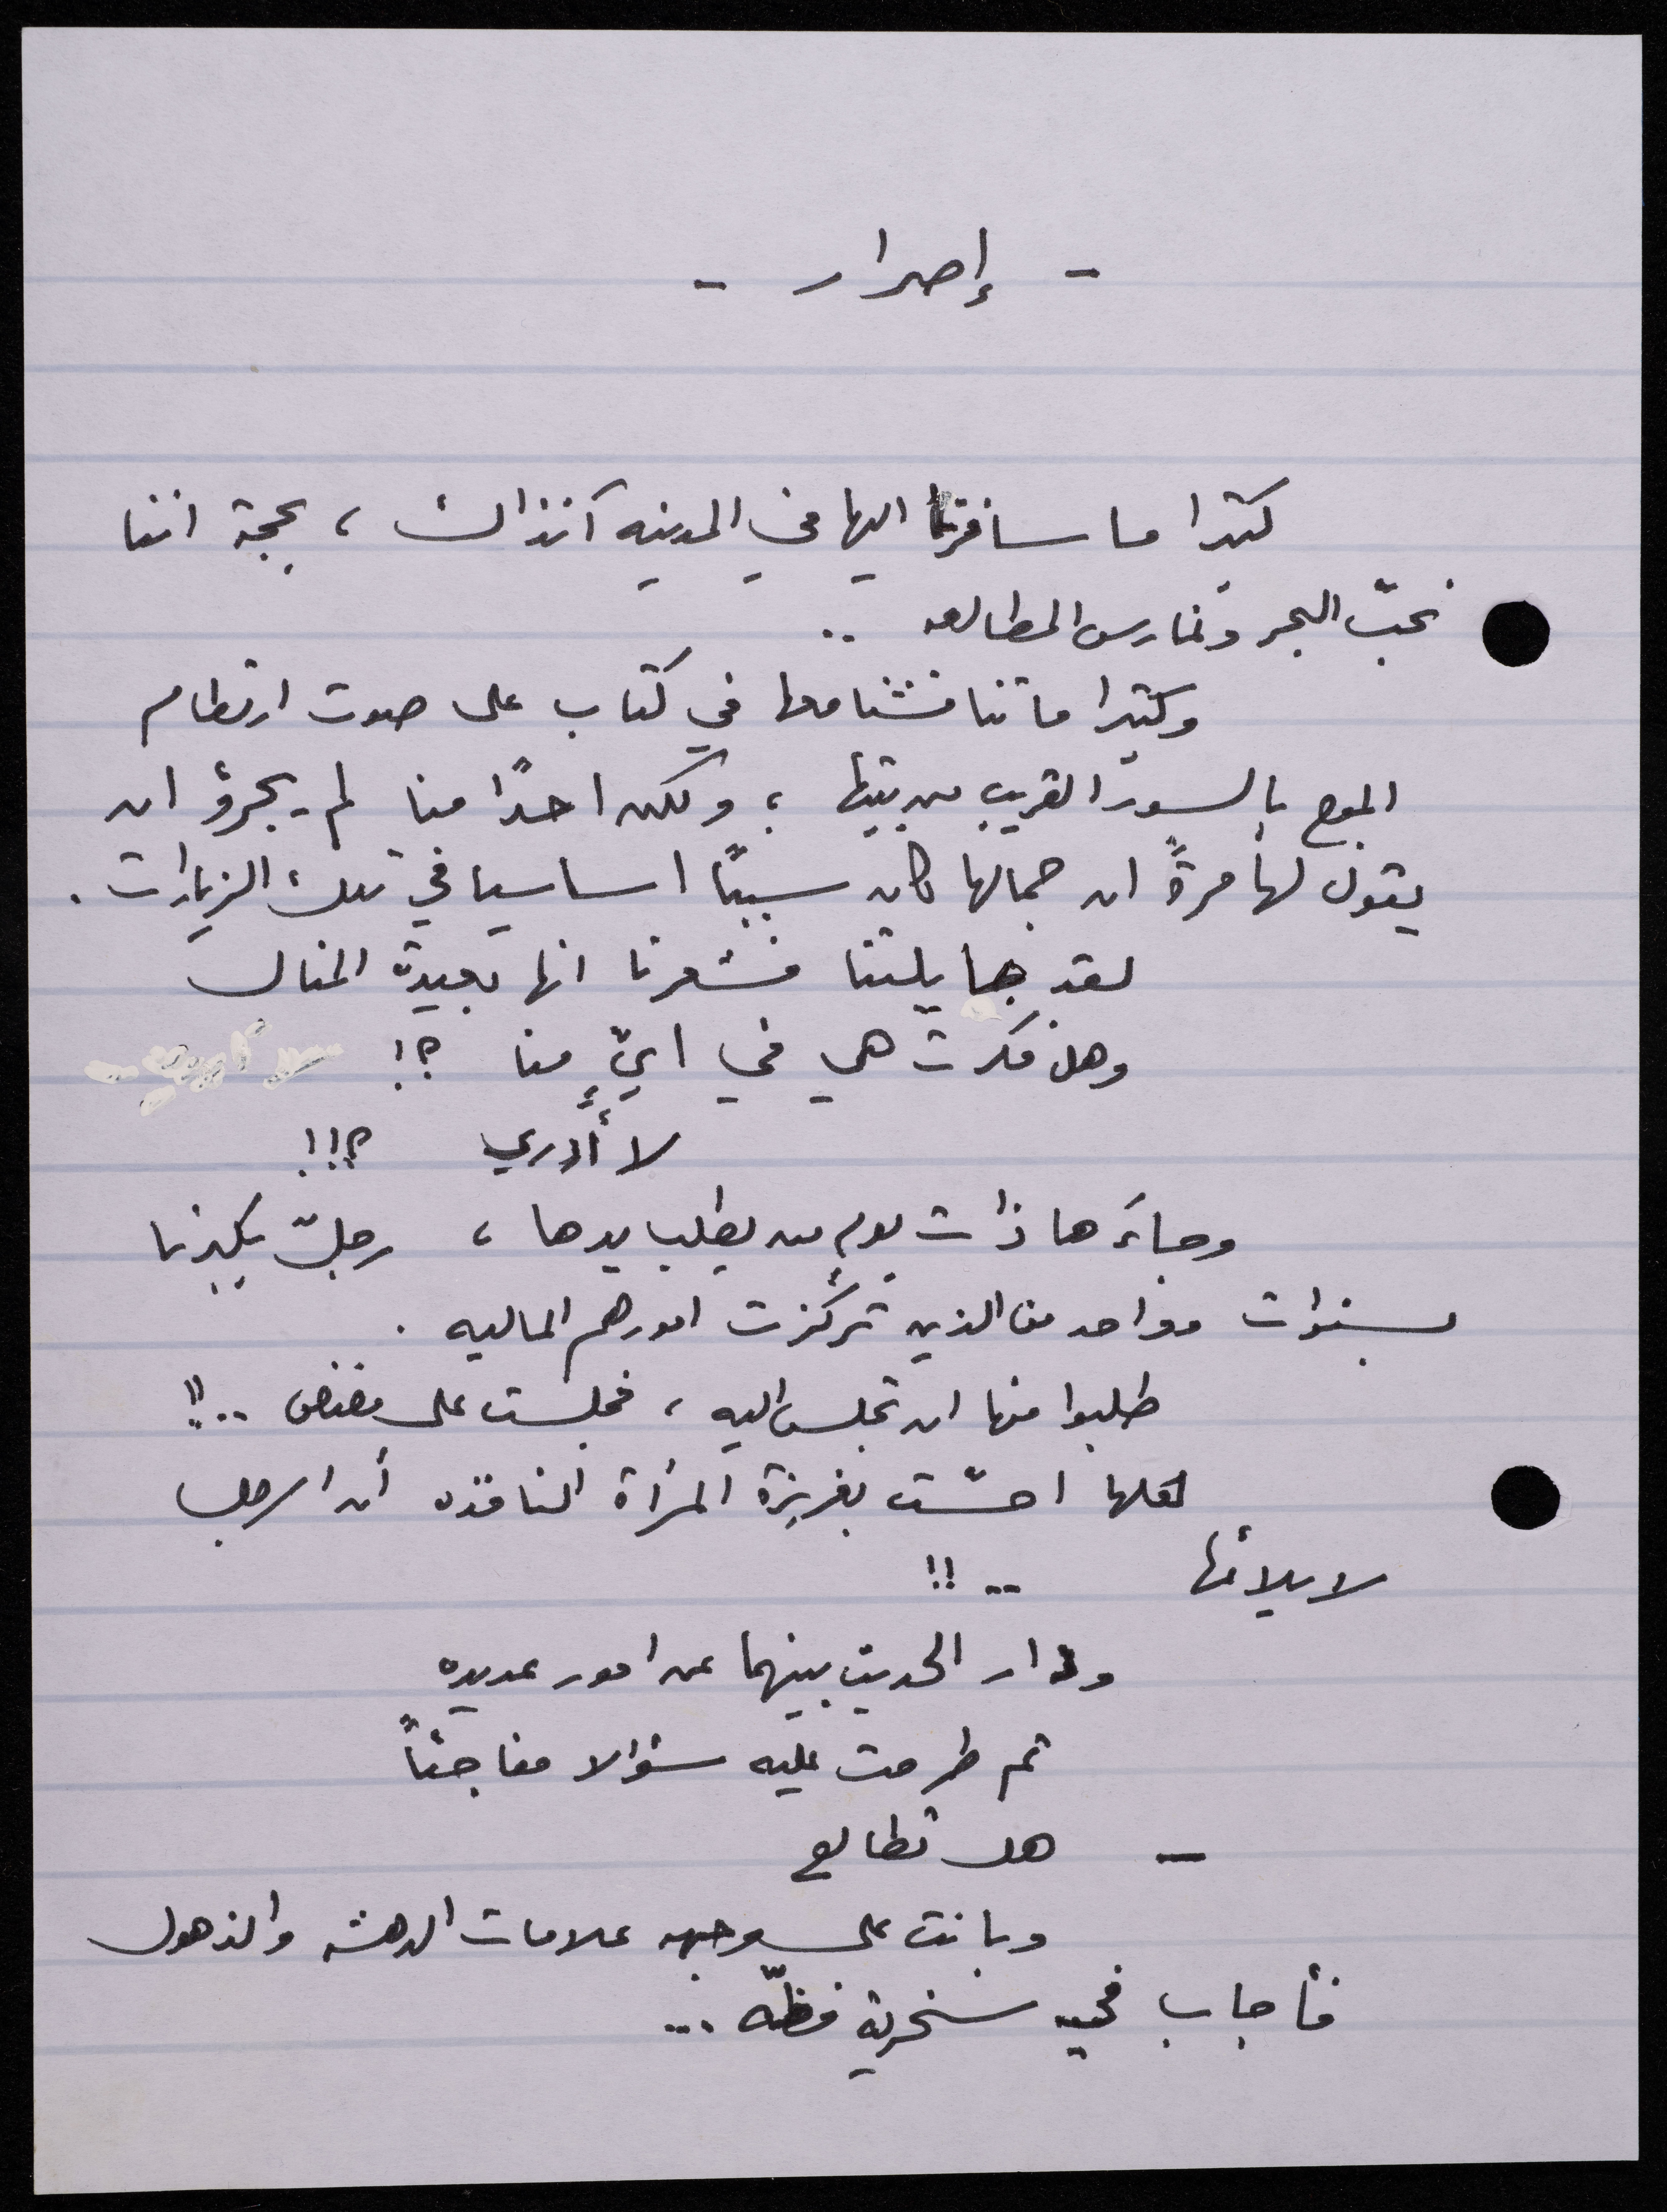 - إصرار -
كثيرا ما سافرنا اليها في المدينه آنذاك ، بحجة اننا
نحبّ البحر ونمارس المطالعه ..
وكثيرا ما تناقشنا معها في كتاب على صوت ارتطام
الموج بالسور القريب من بيتها ؛ ولكن احدًا منا لم يجرؤ ان
يقول لها مرةً ان جمالها كان سببًا اساسيا في تلك الزيارات .
لقد جايلتنا فشعرنا انها بعيدة المنال
وهل فكرت هي في ايٍّ منا ؟!
لا أدري ؟!!
وجاءَها ذات يومٍ من يطلب يدها ، رجلٌ يكبرنا
بسنوات وواحد من الذين تمركزت امورهم الماليه .
طلبوا منها ان تجلس اليه ، فجلست على مضض ..!!
لعلها احسّت بغريزة المرأة النافذه أن الرجل
لا يلائمها ..!!
ودار الحديث بينهما عن امور عديده
ثم طرحت عليه سؤالا مفاجئاً
- هل تطالع
وبانت على وجهه علامات الدهشه والذهول
فأجاب في سخرية فظّه ...